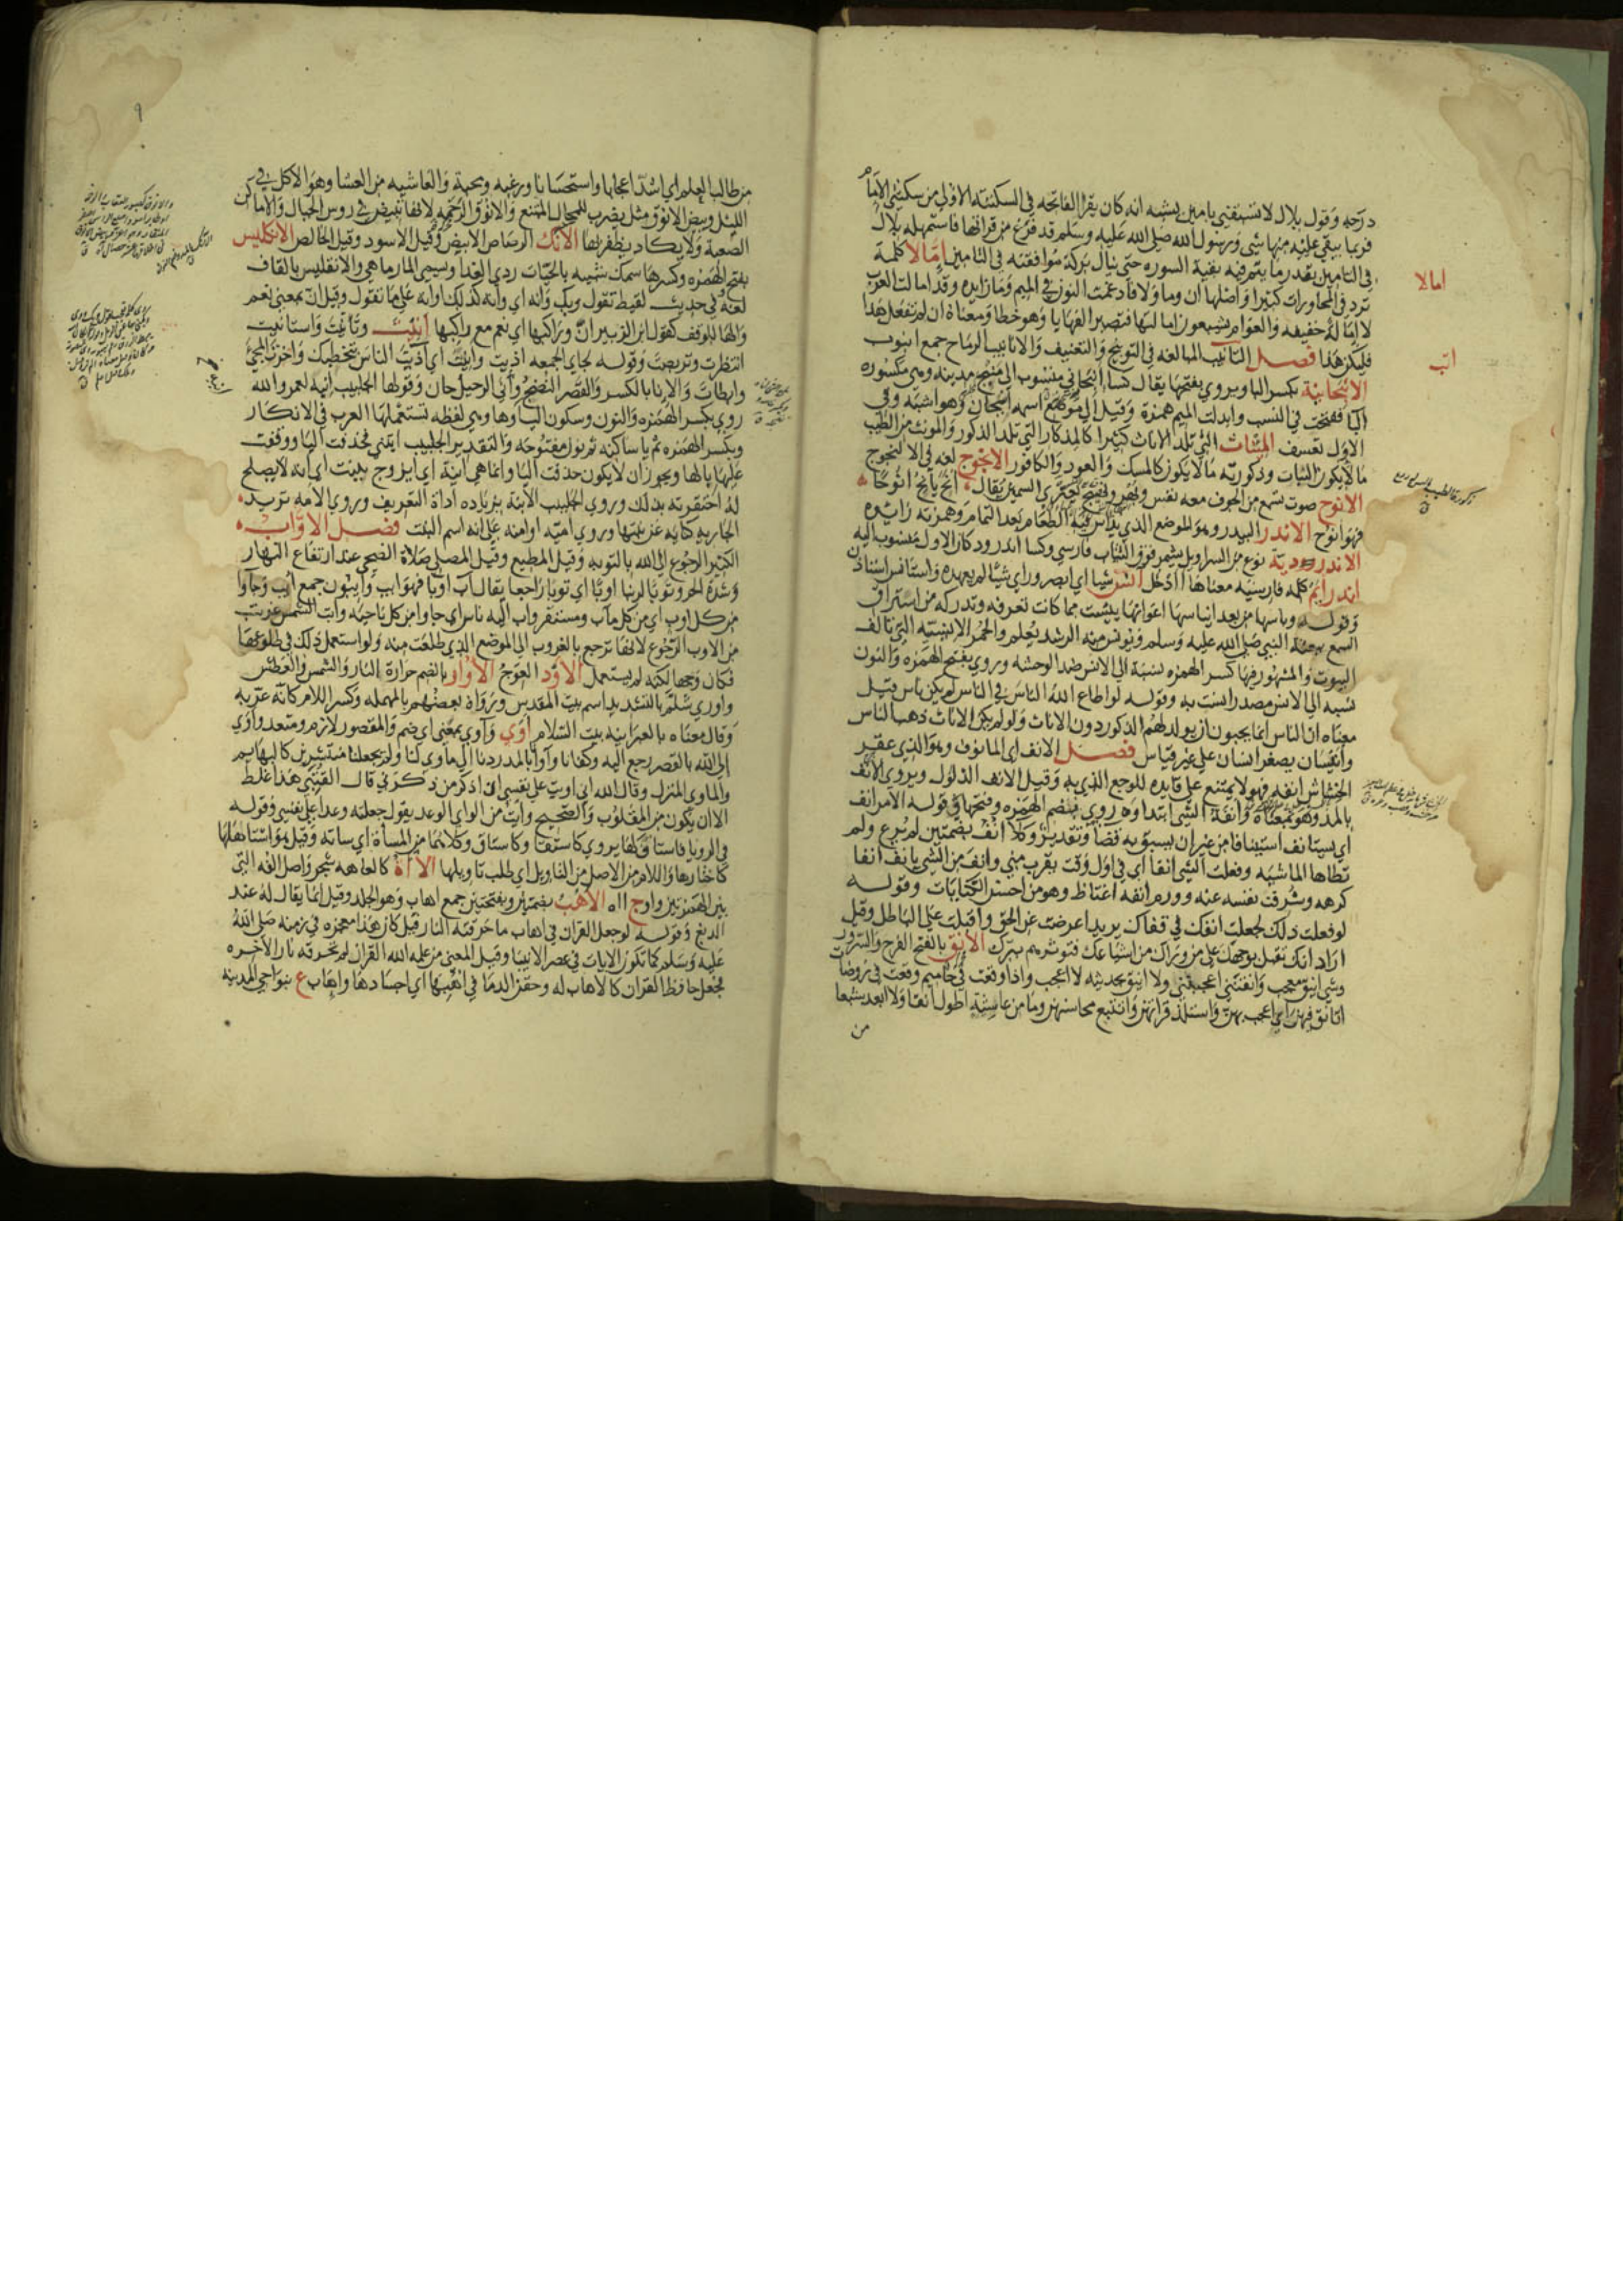 درجه وقول بلال لا تسبقني بامين يشبه انه كان يقرا الفاتحه في السكتة الاولى من سكتتي الامام
فربما يبقى عليه منها شي ورسول الله صلى الله عليه وسلم قد فرغ من قراتها فاستمهله بلال
في التامين بقدر ما يتم فيه بقية السوره حتى ينال بركة موافقته في التامين امالا كلمة
ترد في المحاورات كثيرا واصلها ان وما ولا فادغمت النون في الميم وما زايده وقد امالت العرب
لا امالة خفيفه والعوام يشبعون امالتها فتصير الفها يا وهو خطا ومعناه ان لم تفعل هذا
فليكن هذا فصل التانيب المبالغه في التوبيخ والتعنيف والانابيب الرماح جمع انبوب
الانبجانية بكسر البا ويروى بفتحها يقال كسا انبجاني منسوب الى منبج مدينه وهي مكسوره
البا ففتحت في النسب وابدلت الميم همزة وقيل الى موضع اسمه انبجان وهو اشبه وفي
الاول تعسف المئناث التي تلد الاناث كثيرا كالمذكار التي تلد الذكور والمونث من الطيب
ما لا يكون للثياب وذكورته ما لا يكون كالمسك والعود والكافور الانجوج لغه في الالنجوج
الانوح صوت يسمع من الجوف معه نفس وبهر ونهيج يعتري السمين يقال انح يانح انوحا
فهو انوح الاندر البيدر وهو الموضع الذي يداس فيه الطعام بعد التمام وهمزته زايده
الاندروردية نوع من السراويل يشمر فوق التبان فارسي وكسا اندرورد كان الاول منسوب اليه
اندرايم كلمه فارسيه معناها اادخل انس شيا اي ابصر وراى شيئا لم يعهده واستانس استاذن
وقوله وياسها من بعد ايناسها اي انها يئست مما كانت تعرفه وتدركه من استراق
السمع ببعثة النبي صلى الله عليه وسلم ويونس منه الرشد يعلم والحمر الانسيه التي تالف
البيوت والمشهور فيها كسر الهمزه نسبة الى الانس ضد الوحشه وروي بفتح الهمزه والنون
نسبه الى الانس مصدر انست به وقوله لو اطاع الله الناس في الناس لم يكن ناس قيل
معناه ان الناس انما يحبون ان يولد لهم الذكور دون الاناث ولو لم يكن الاناث ذهب الناس
وانيسان تصغير انسان على غير قياس فصل الانف اي المانوف وهو الذي عقر
الخشاش انفه فهو لا يمتنع على قايده للوجع الذي به وقيل الانف الذلول ويروى الانف
بالمد وهو بمعناه وانفة الشي ابتداوه روي بضم الهمزه وفتحها في قوله الامر انف
اي يستانف استينافا من غير ان يسبق به قضا وتقدير وكلا انف بضمتين لم يرع ولم
تطاها الماشيه وفعلت الشي انفا اي في اول وقت يقرب مني وانف من الشي يانف انفا
كرهه وشرفت نفسه عنه وورم انفه اغتاظ وهو من احسن الكنايات وقوله
لو فعلت ذلك لجعلت انفك في قفاك يريد اعرضت عن الحق واقبلت على الباطل وقيل
اراد انك تقبل بوجهك على من وراك من اشياعك فتوثرهم ببرك الانق بالفتح الفرح والسرور
وشي انيق معجب وانقتني اعجبتني ولا اينق بحديثه لا اعجب واذا وقعت في حاميم وقعت في روضات
اتانق فيهن اي اعجب بهن واستلذ قراتهن واتتبع محاسنهن وما من عاشية اطول انقا ولا ابعد شبعا
من
امالا
انب
٩
من طالب العلم اي اشد اعجابا واستحسانا ورغبه ومحبة والعاشيه من العشا وهو الاكل في
الليل وبيض الانوق مثل يضرب للمحال الممتنع والانوق الرخمه لانها تبيض في روس الجبال والاماكن
الصعبة ولا يكاد يظفر بها الانك الرصاص الابيض وقيل الاسود وقيل الخالص الانكليس
بفتح الهمزه وكسرها سمك شبيه بالحيات ردي الغذا وسمي المارماهي والانقليس بالقاف
لغه وفي حديث لقيط تقول ربك وانه اي وانه كذلك او انه على ما تقول وقيل ان بمعنى نعم
والها للوقف كقول ابن الزبير ان وراكبها اي نعم مع راكبها انيت وتانيت واستانيت
انتظرت وتربصت وقوله لجاي الجمعه اذيت وانيت اي اذيت الناس بتخطيك واخرت المجي
وابطات والانا بالكسر والقصر النضج وانى الرحيل حان وقولها الجليبيب انيه لعمر والله
روي بكسر الهمزه والنون وسكون اليا وها وهي لفظه تستعملها العرب في الانكار
وبكسر الهمزه ثم يا ساكنه ثم نون مفتوحه والتقدير الجليبيب ابنتي فحذفت اليا ووقفت
عليها بالها ويجوز ان لا يكون حذفت اليا وانما هي ابنة اي ايزوج ببنت اي انه لا يصلح
له احتقرته بذلك وروي الجليبيب الابنة بزياده اداة التعريف وروي الامه تريد
الجاريه كنايه عن بنتها وروي امية او امنه على انه اسم البنت فصل الاواب
الكثير الرجوع الى الله بالتوبه وقيل المطيع وقيل المصلي صلاة الضحى عند ارتفاع النهار
وشدة الحر وتوبا لربنا اوبا اي توبا راجعا يقال آب اوبا فهو ايب وايبون جمع ايب وجاوا
من كل اوب اي من كل مآب ومستقر واب اليه ناس اي جاوا من كل ناحيه وابت الشمس غربت
من الاوب الرجوع لانها ترجع بالغروب الى الموضع الذي طلعت منه ولو استعمل ذلك في طلوعها
فكان وجها لكنه لم يستعمل الاود العوج الاوار بالضم حرارة النار والشمس والعطش
واوري شلم بالتشديد اسم بيت المقدس ورواه بعضهم بالمهمله وكسر اللام كانه عربه
وقال معناه بالعبرانيه بيت السلام اوي وآوي بمعنى اي ضم والمقصور لازم ومتعد واوى
الى الله بالقصر رجع اليه وكفانا وآوانا بالمد ردنا الى ماوى لنا ولم يجعلنا منتشرين كالبهايم
والماوى المنزل وقال الله اني اويت على نفسي ان اذكر من ذكرني قال القتيبي هذا غلط
الا ان يكون من المقلوب والصحيح وايت من الواي الوعد يقول جعلته وعدا على نفسي وقوله
في الرويا فاستا لها يروى كاستقا وكاستاق وكلاهما من المساة اي ساته وقيل هو استاهلها
كاختارها واللام من الاصل من التاويل اي طلب تاويلها الاآة كالعاهه شجر واصل الفه التي
بين الهمزتين واو ج ااه الاهب بضمتين وبفتحتين جمع اهاب وهو الجلد وقيل انما يقال له عند
الدبغ وقوله لو جعل القران في اهاب ما حرقته النار قيل كان هذا معجزه في زمنه صلى الله
عليه وسلم كما تكون الايات في عصر الانبيا وقيل المعنى من علمه الله القران لم تحرقه نار الاخره
فجعل حافظ القران كالاهاب له وحقن الدما في اهبها اي اجسادها واهاب ع بنواحي المدينه